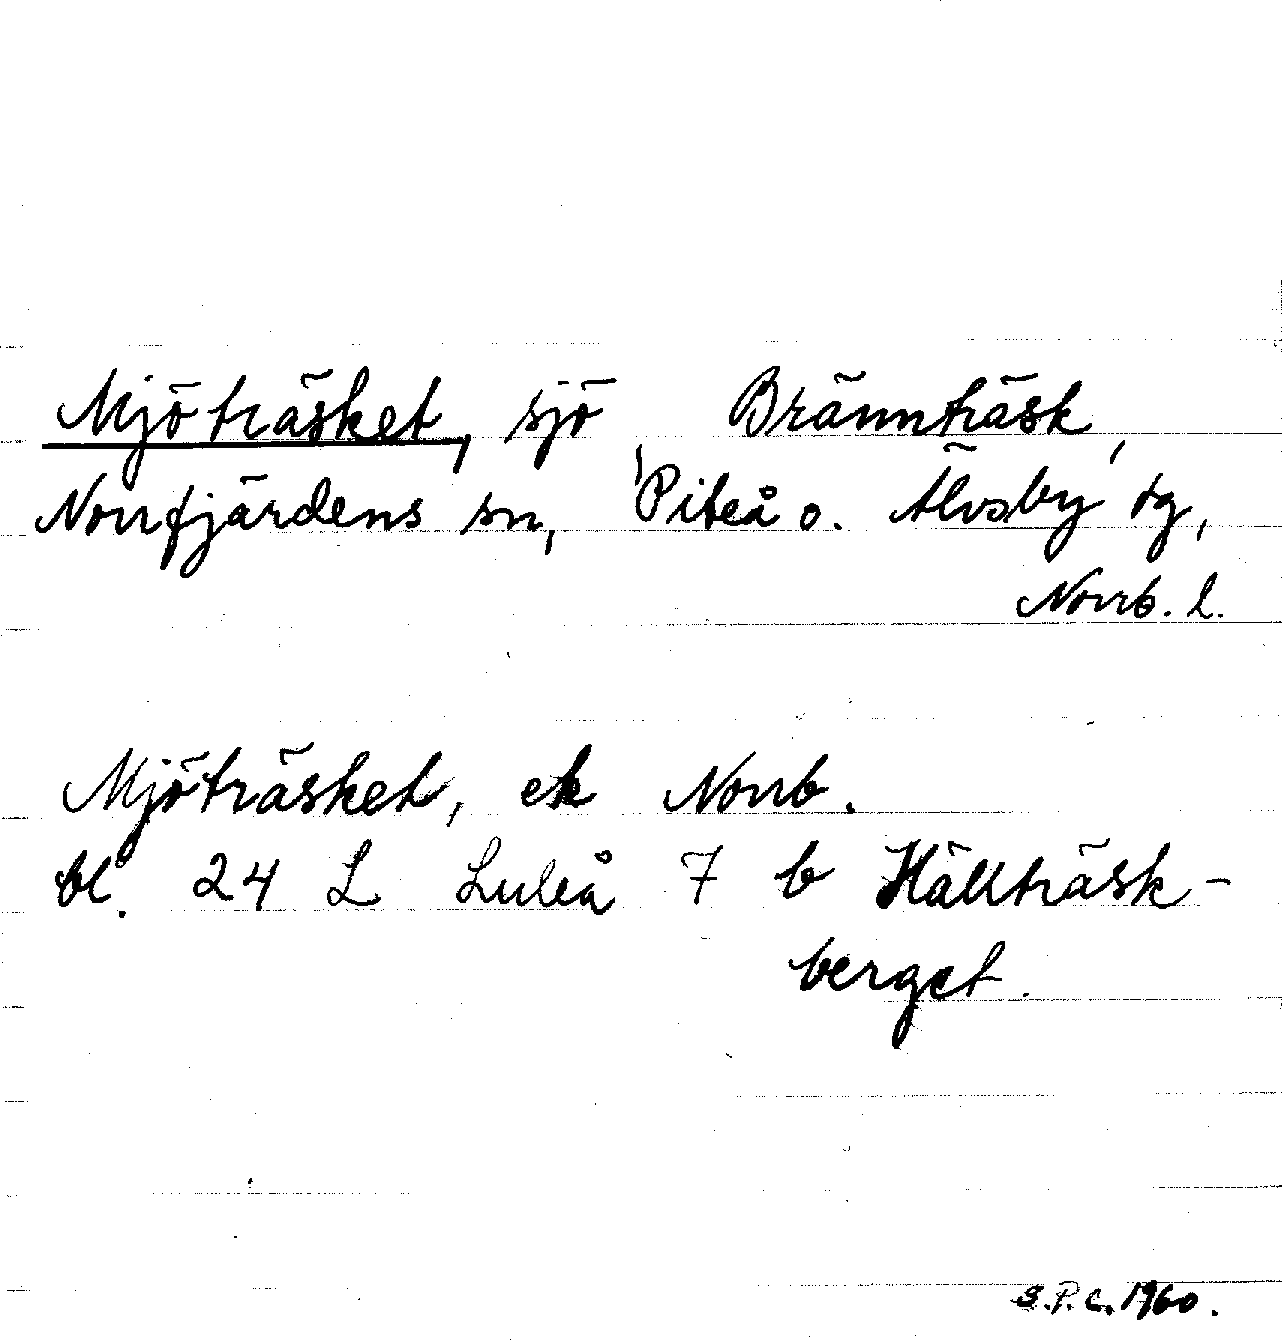 Mjöträsket, sjö, Brännträsk,
Norrfjärdens sn, Piteå o. Älvsby tg,
Norrb. l.
Mjöträsket, ek Norrb.
bl. 24 L Luleå 7 b Hällträsk-
berget.
S.P.C. 1960.